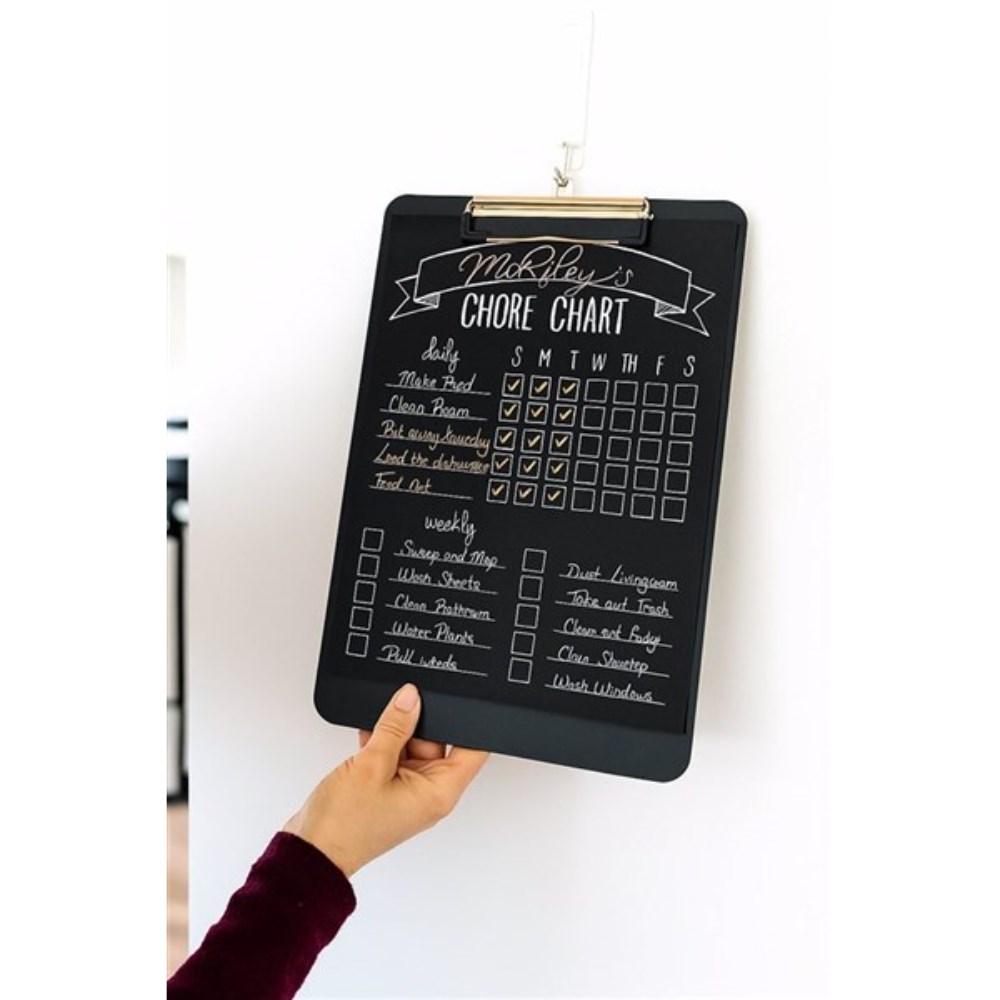 McRiley's
CHORE CHART
daily S M T W TH F S
Make Bed
Clean Room
Put away laundry
Load the dishwasher
Feed
weekly
Sweep and Mop
Wash Sheets
Clean Bathroom
Water Plants
Pull weeds
Dust Livingroom
Take out Trash
Clean out
Clean
Wash Windows